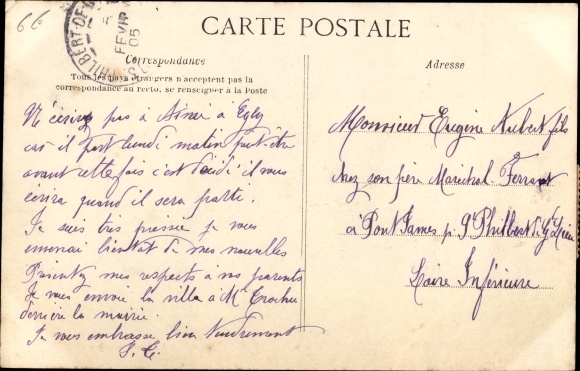 66
PHILBERT-DE-G
FEVR
05
CARTE POSTALE
Correspondance
Tous les pays étrangers n'acceptent pas la
correspondance au recto, se renseigner à la Poste
Adresse
N'écrivez pas à Aimé à Egly
car il part lundi matin peut-être
avant cette fois c'est décidé il vous
écrira quand il sera parti.
Je suis très pressée je vous
enverrai bientôt de mes nouvelles
Présentez mes respects à vos parents
Je vous envoie la villa à Mr
derrière la mairie.
Je vous embrasse bien tendrement
Monsieur Eugène Aubert fils
chez son père Maréchal Ferrant
à Pont James p. St Philbert de Gd Lieu
Loire Inférieure